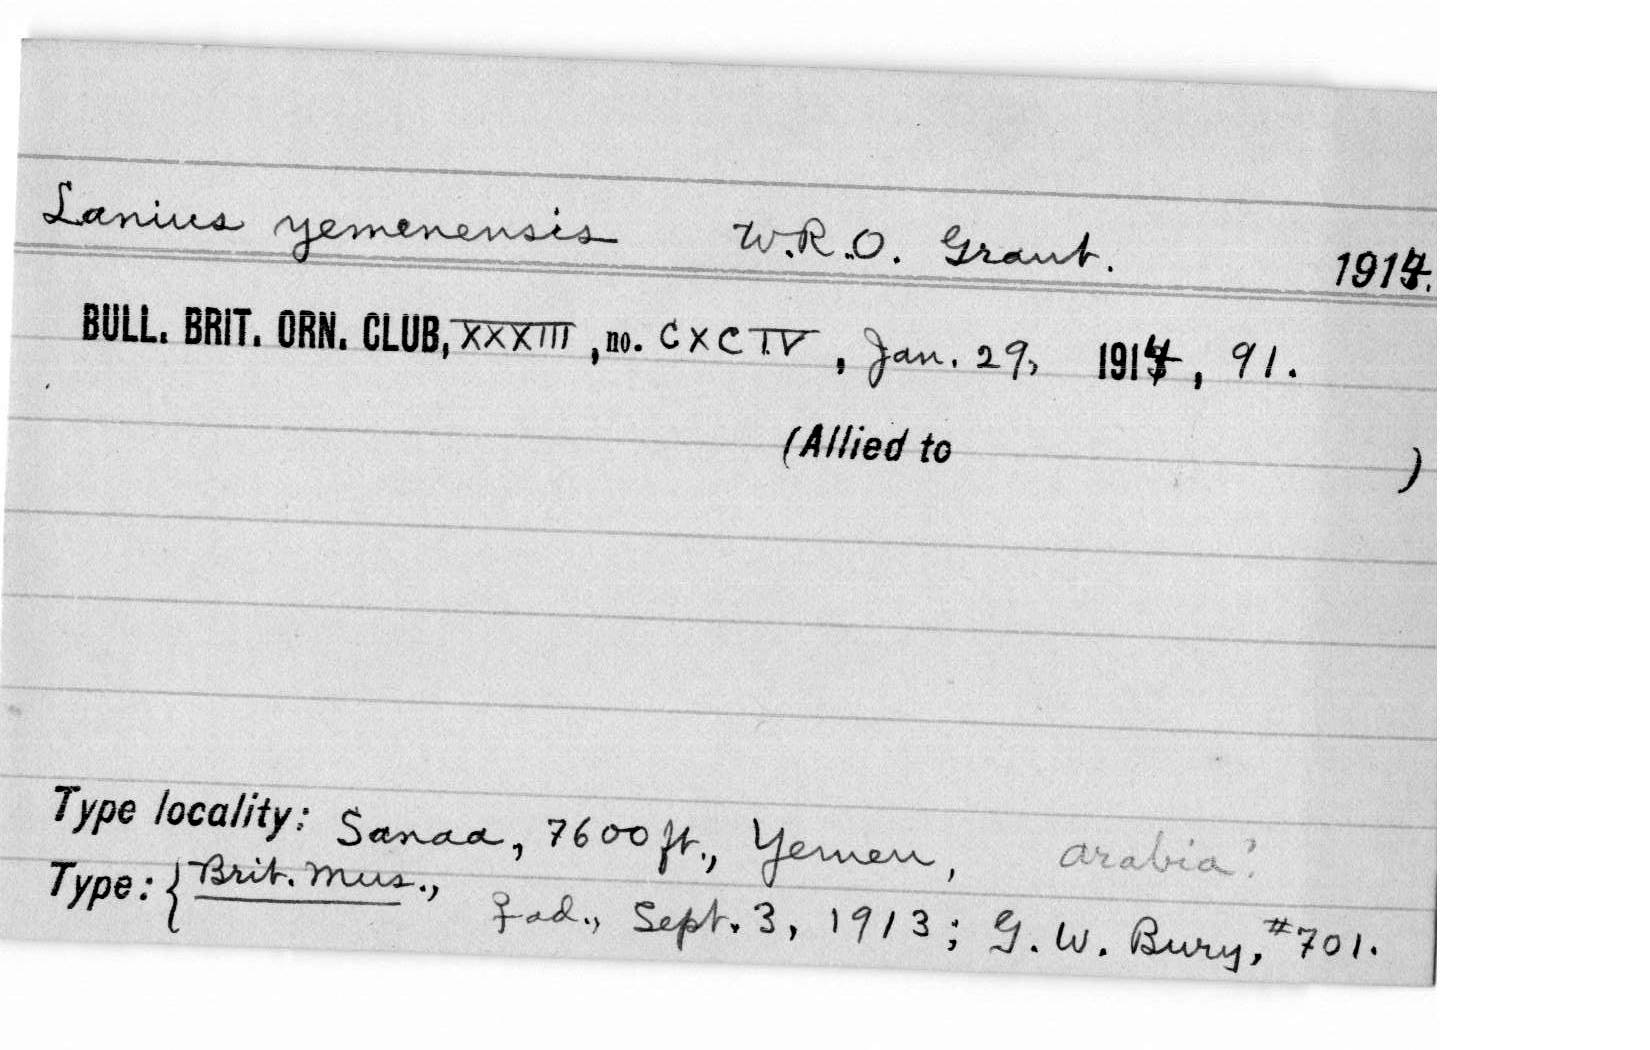 Lanius yemenensis W.R.O. Grant. 1914.
BULL. BRIT. ORN. CLUB, XXXIII, no. CXCIV, Jan. 29, 1914, 91.
(Allied to )
Type locality: Sanaa, 7600 ft., Yemen, Arabia?
Type: { Brit. Mus., ♀ ad., Sept. 3, 1913; G. W. Bury, #701.